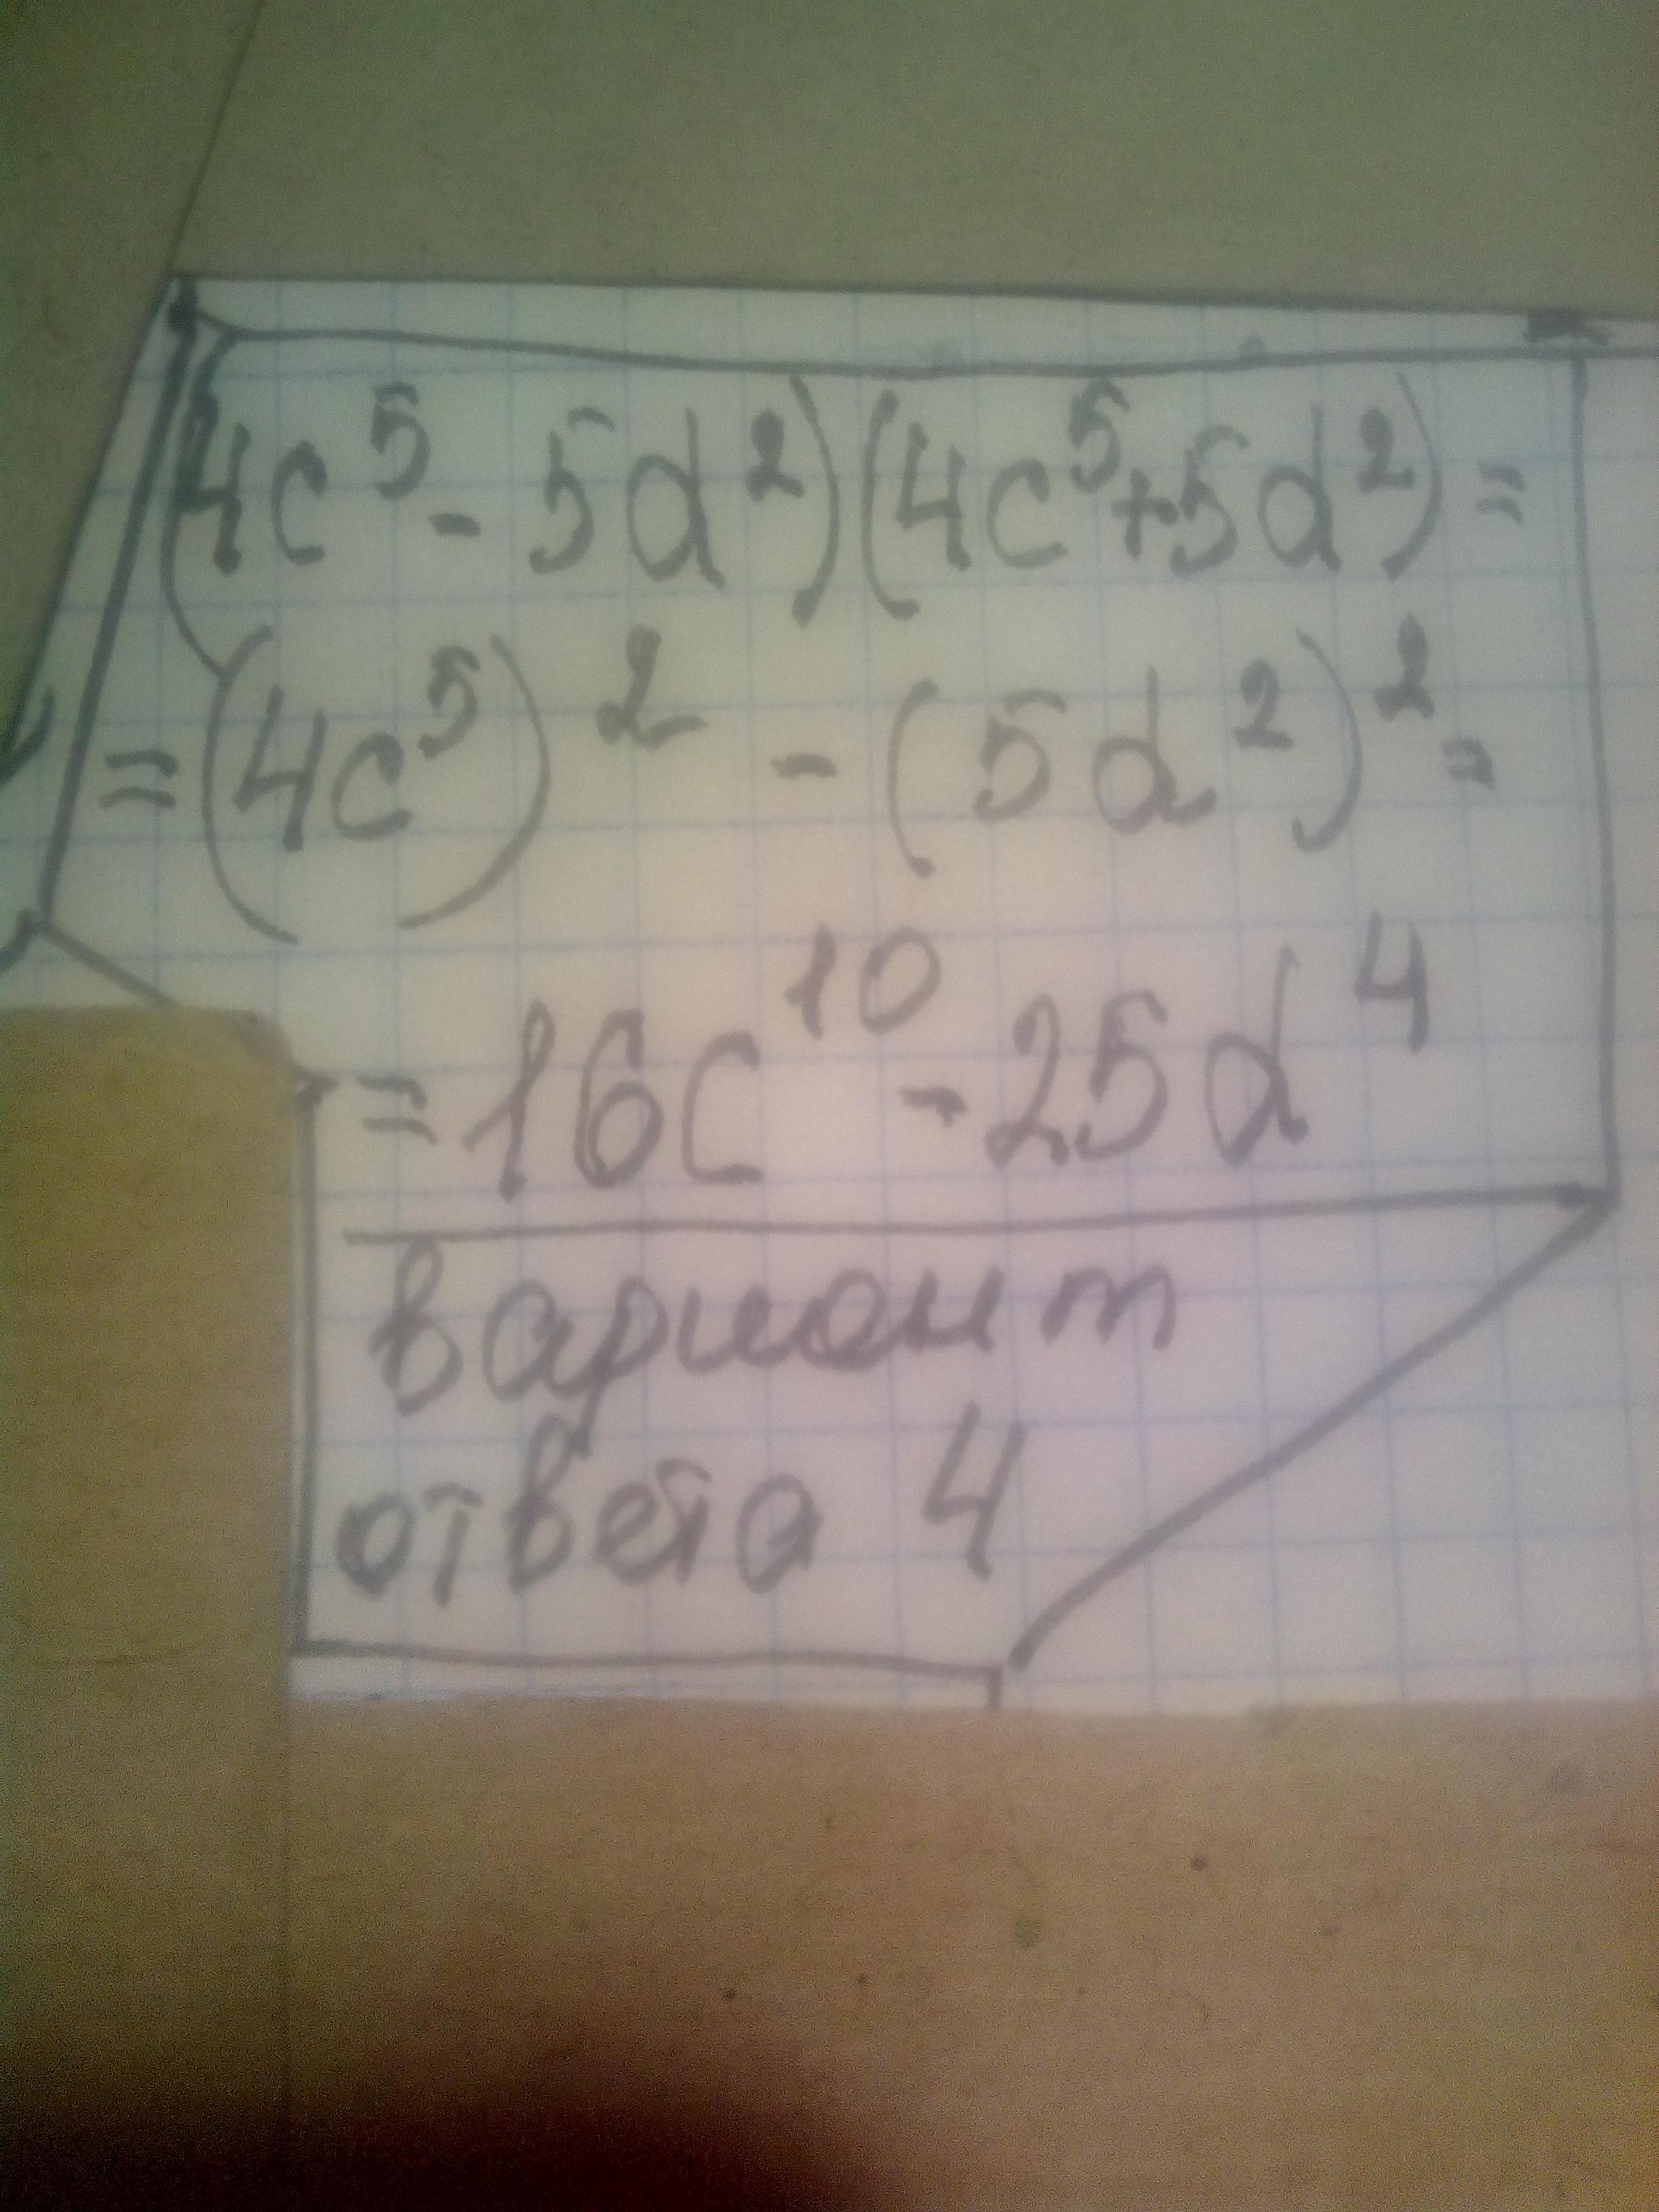 (4c⁵ - 5d²)(4c⁵+5d²) =
= (4c⁵)² - (5d²)² =
= 16c¹⁰ - 25d⁴
вариант
ответа 4